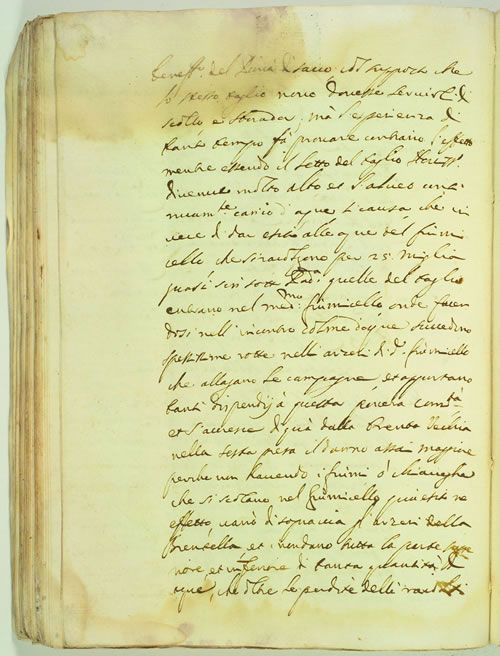 del Piovà di sacco, col supposto che
lo stesso taglio novo dovesse servirli di
scollo e strada; mà l'esperienza di
tanto tempo fà provare contrario l'effetto
mentre essendo il Letto del taglio
divenuto molto alto et l'alveo conti
nuam.te carico d'aque causa, che in
vece di dar esito alle aque del fiumi
cello che per 25 miglia
quasi sin sotto Pad.a quelle del taglio
entrano nel med.mo fiumicello, onde
dosi nell'incontro colme d'aque succedono
spessissime rotte nelli arzeri di d.o fiumicello
che allagano le campagne, et apportano
tanti dispendij à questa povera com.tà
et s'accresce di quà dalla Brenta Vecchia
nella sesta presa il danno assai maggiore
perche non havendo i fiumi ò
che si scolano nel fiumicello
effetto, vanno di sopra via gl'arzeri della
Brentella et inondano tutta la parte
et inferiore di tanta quantità di
aque, che oltre le perdite delli